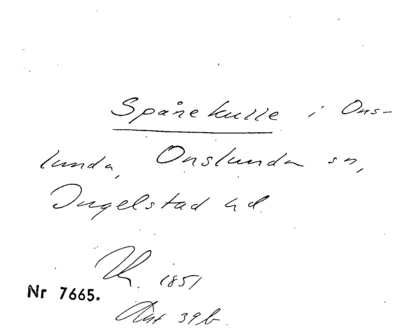 Spånekulle i Ons-
lunda, Onslunda sn,
Ingelstad hd.
1851
Nr 7665.
Ant 39 b.